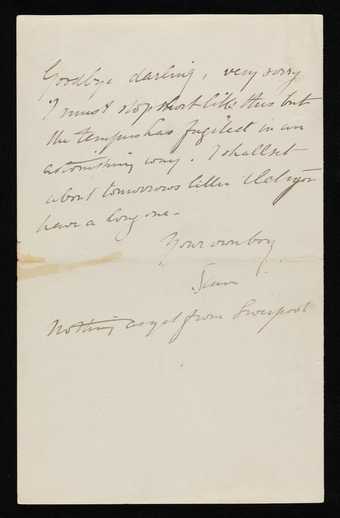 Goodbye darling, very sorry
I must stop short like this but
the tempus has fugited in an
astonishing way. I shall set
about tomorrows letter & let you
have a long one.
Your own boy
Nothing as yet from Liverpool